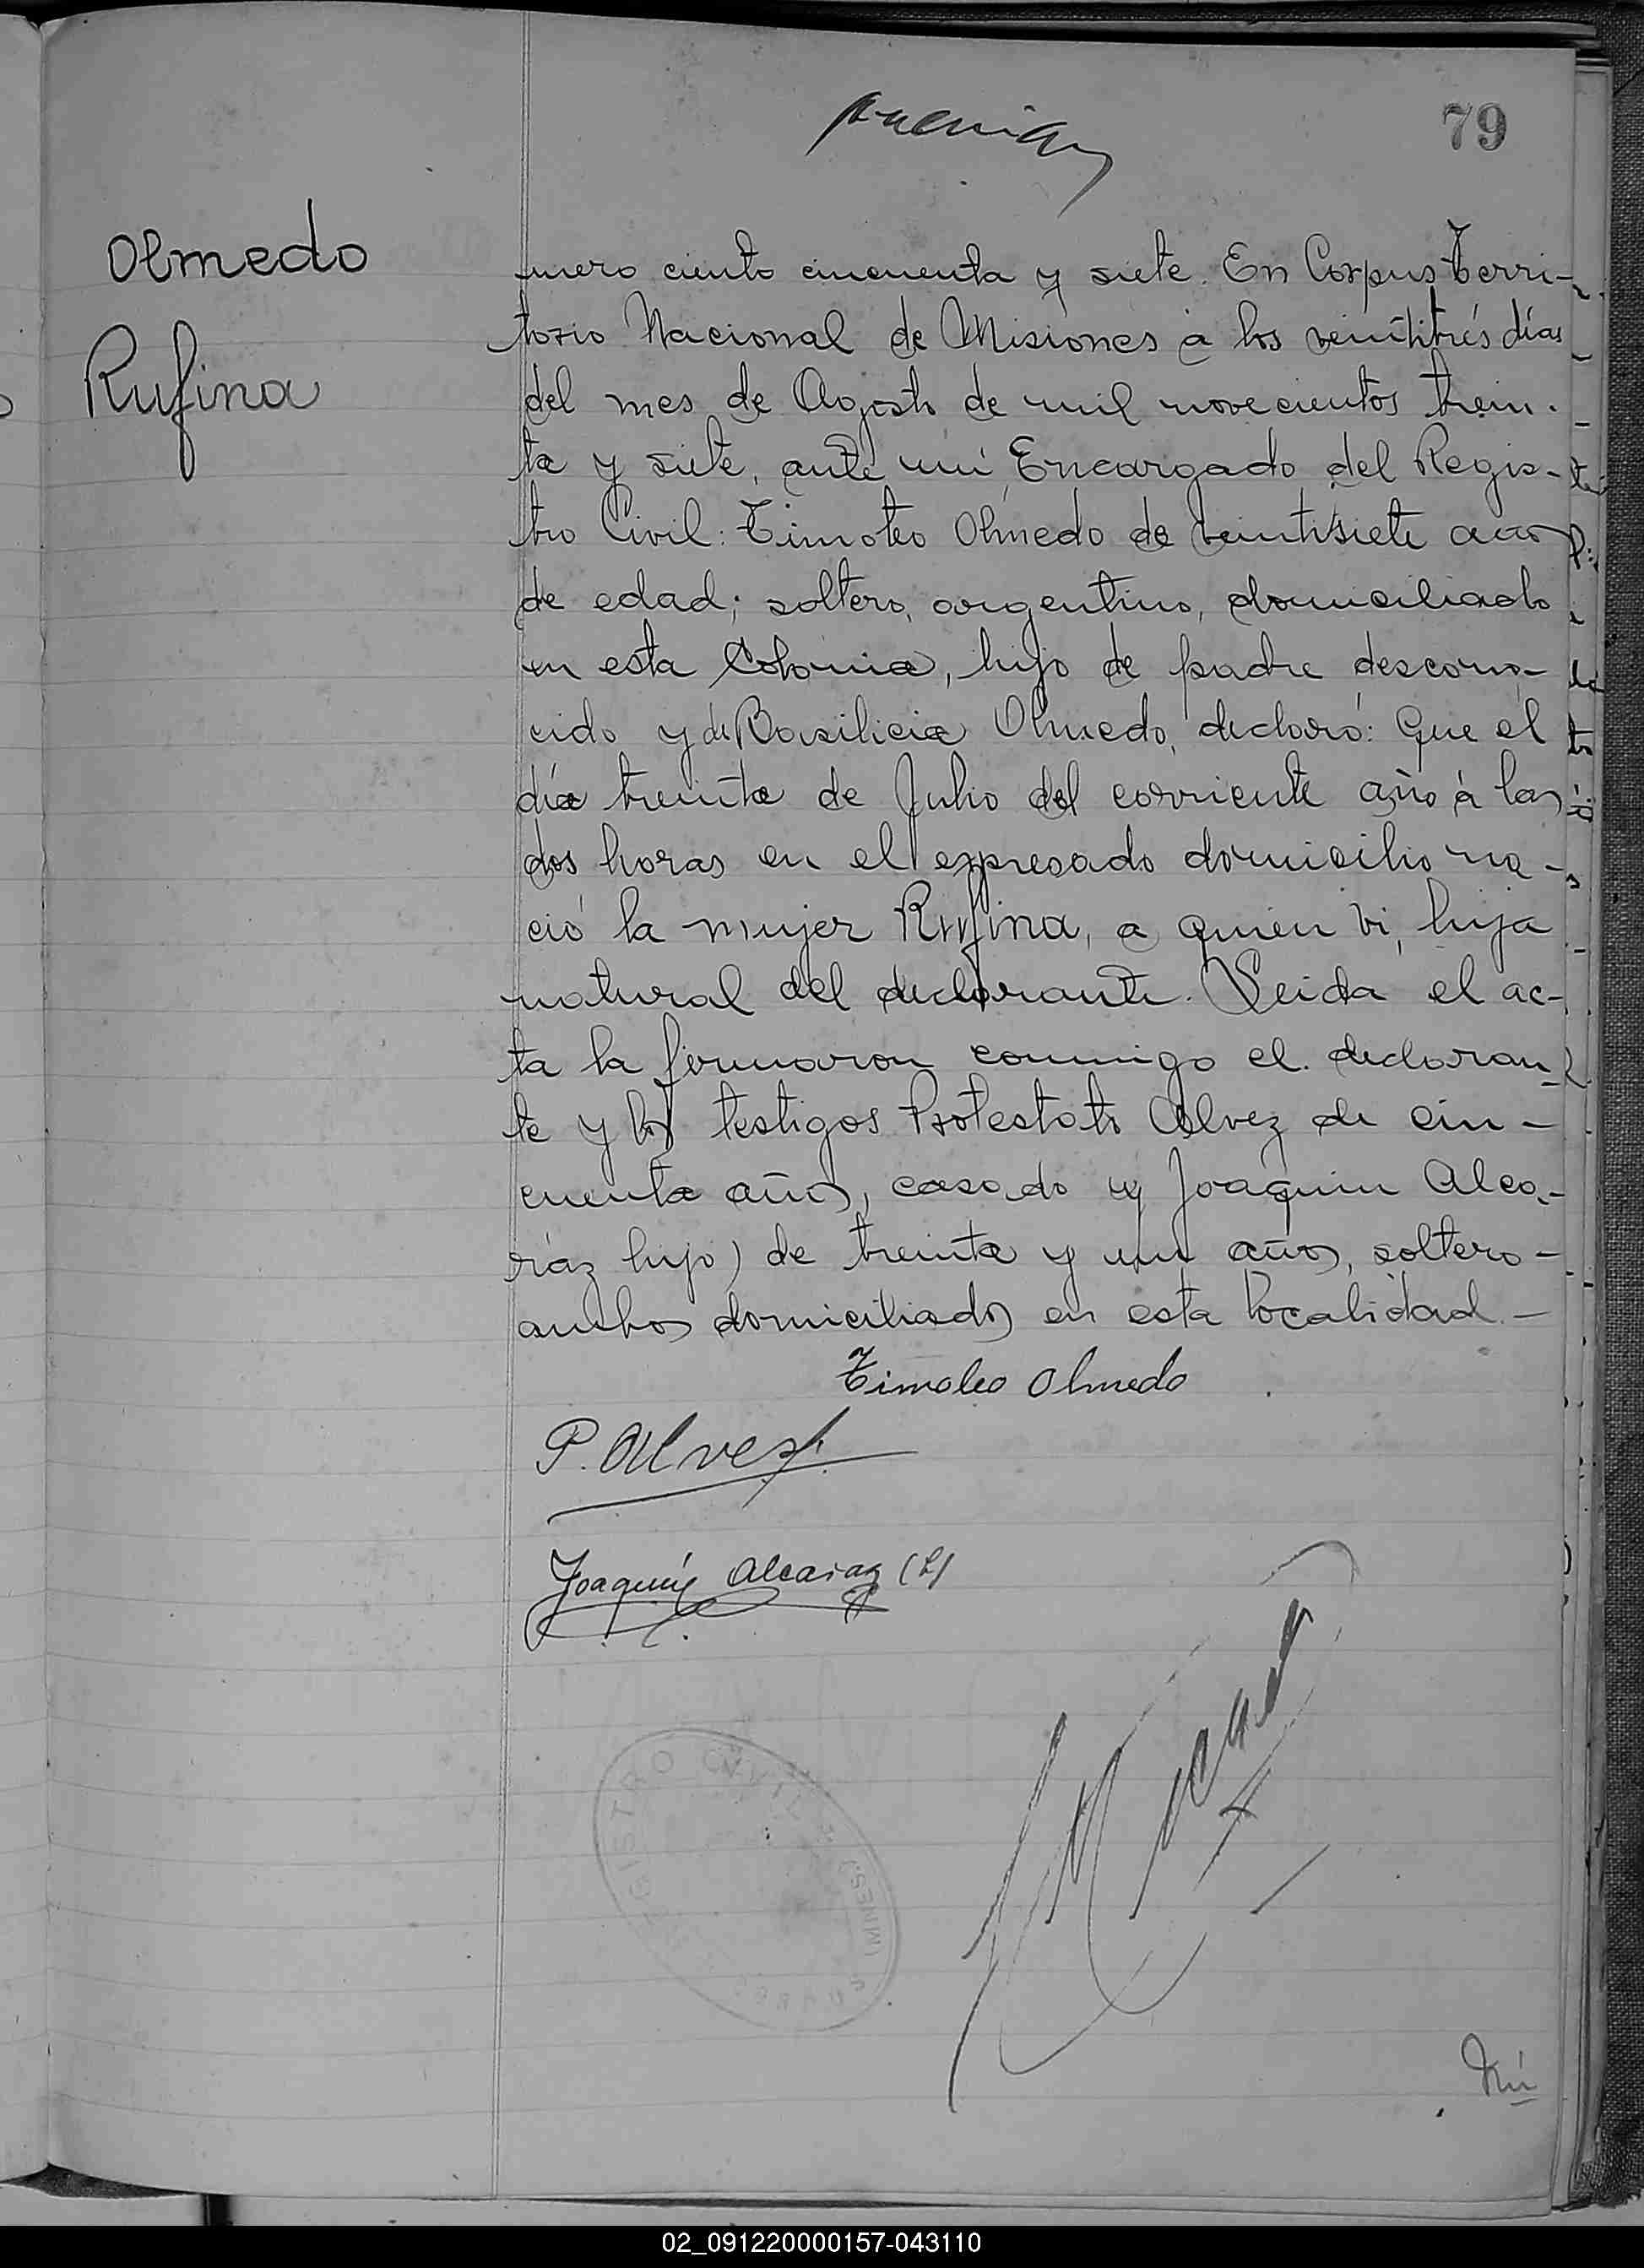 79
Olmedo
Rufina
mero ciento cincuenta y siete. En Corpus Terri-
torio Nacional de Misiones à los veintitrés días
del mes de Agosto de mil novecientos trein-
ta y siete, ante mi Encargado del Regis-
tro Civil: Timoteo Olmedo de veintisiete años
de edad; soltero, argentino, domiciliado
en esta Colonia, hijo de padre descono-
cido y de Basilicia Olmedo, declaró: Que el
día treinta de Julio del corriente año à las
dos horas en el expresado domicilio na-
ció la mujer Rufina, a quien vi, hija
natural del declarante. Leida el ac-
ta la firmaron conmigo el declaran-
te y los testigos Protestato Alvez de cin-
cuenta años, casado y Joaquin Alca-
raz hijo) de treinta y un años, soltero-
ambos domiciliados en esta localidad.-
Timoteo Olmedo
P. Alvez
Joaquín Alcaraz (h)
REGISTRO CIVIL
(MNES.)
CORPUS
Nú
02_091220000157-043110